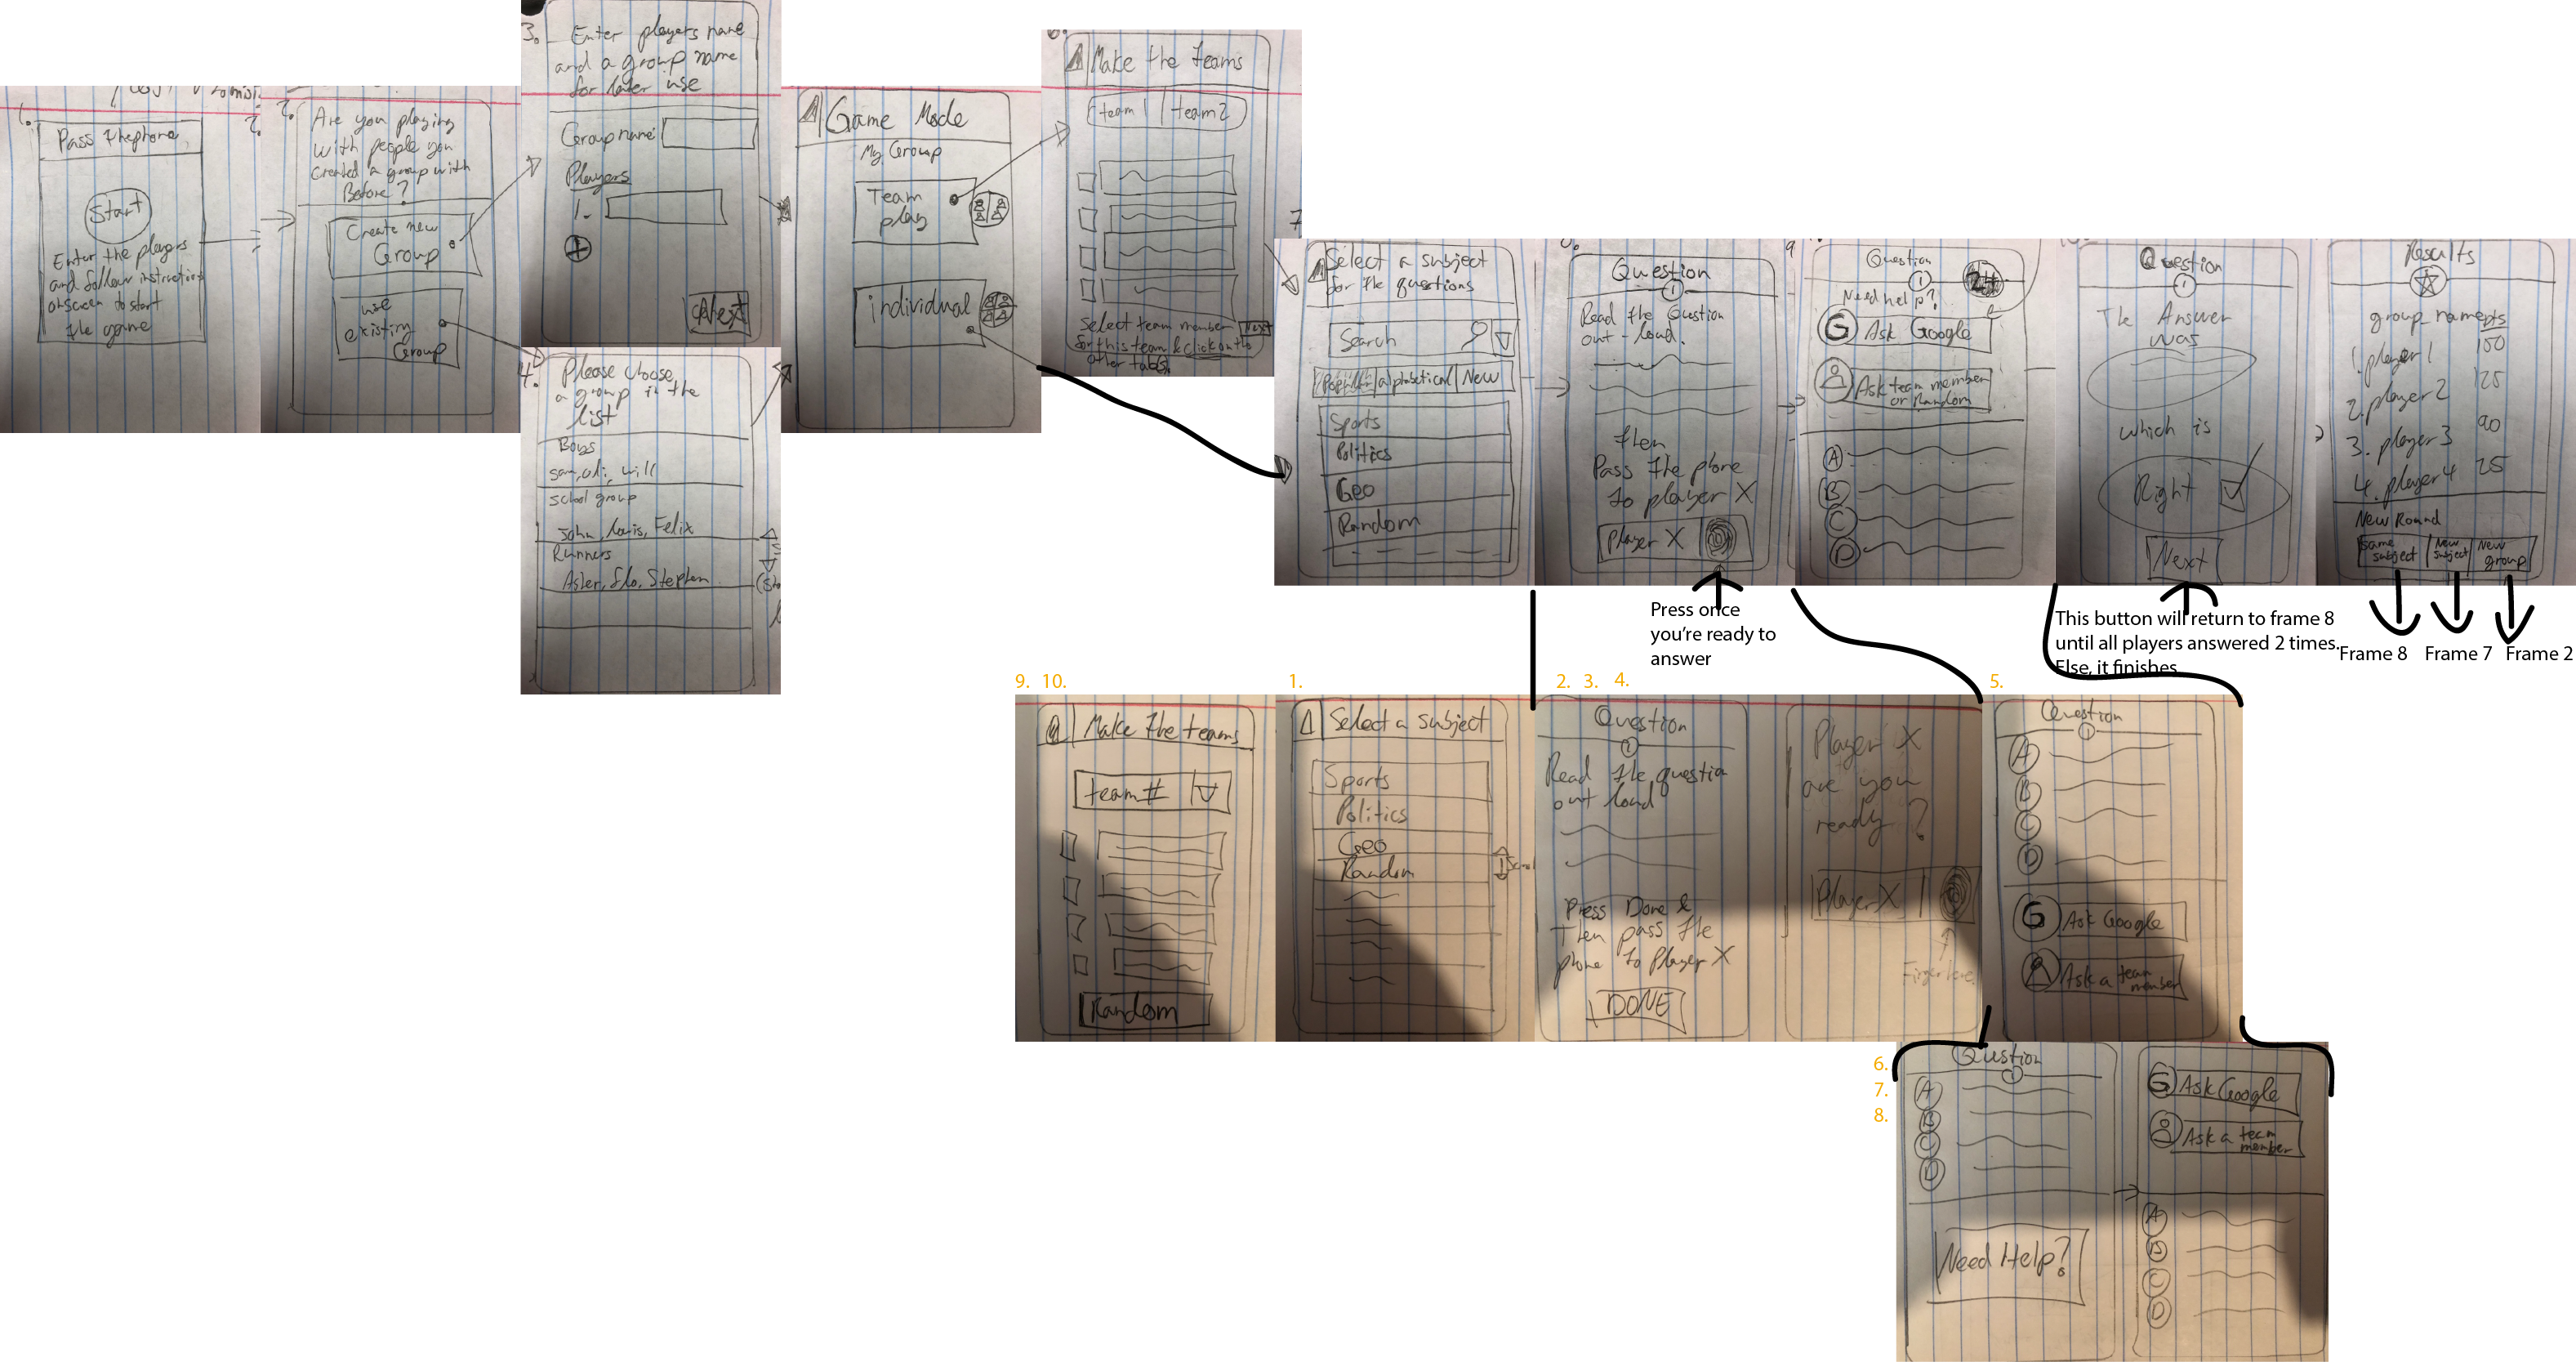 1.
Pass thephone
Start
Enter the players
and follow instructions
onscreen to start
the game
2.
2.
Are you playing
with people you
created a group with
Before?
Create new
Group
use
existing
Group
3.
Enter players name
and a group name
for later use
Group name:
Players
1.
+
Next
4.
Please choose
a group in the
list
Boys
sam, ali, will
school group
John, Louis, Felix
Runners
Asler, flo, Stephen
Game Mode
My Group
Team
play
individual
6.
Make the teams
team 1 | team 2
Select team member
Next
for this team & click on the
other tabs
7
Select a subject
for the questions
Search
Popular | alphabetical | New
Sports
Politics
Geo
Random
8.
Question
1
Read the Question
out-loud.
then
Pass the phone
to player X
Player X
Press once
you're ready to
answer
9
Question
1
Need help?
G Ask Google
Ask team member
or Random
A
B
C
D
Question
1
The Answer
was
which is
Right
Next
This button will return to frame 8
until all players answered 2 times.
Else, it finishes
Results
group_name pts
1. player 1 150
2. player 2 125
3. player 3 90
4. player 4 25
New Round
same
subject
New
Subject
New
group
Frame 8
Frame 7
Frame 2
9. 10.
Make the teams
team #
Random
1.
Select a subject
Sports
Politics
Geo
Random
2. 3. 4.
Question
1
Read the question
out loud
Press Done &
Then pass the
phone to Player X
DONE
Player X
are you
ready?
Player X
Finger here
5.
Question
1
A
B
C
D
G Ask Google
Ask a team
member
6.
7.
8.
Question
1
A
B
C
D
Need Help?
G Ask Google
Ask a team
member
A
B
C
D